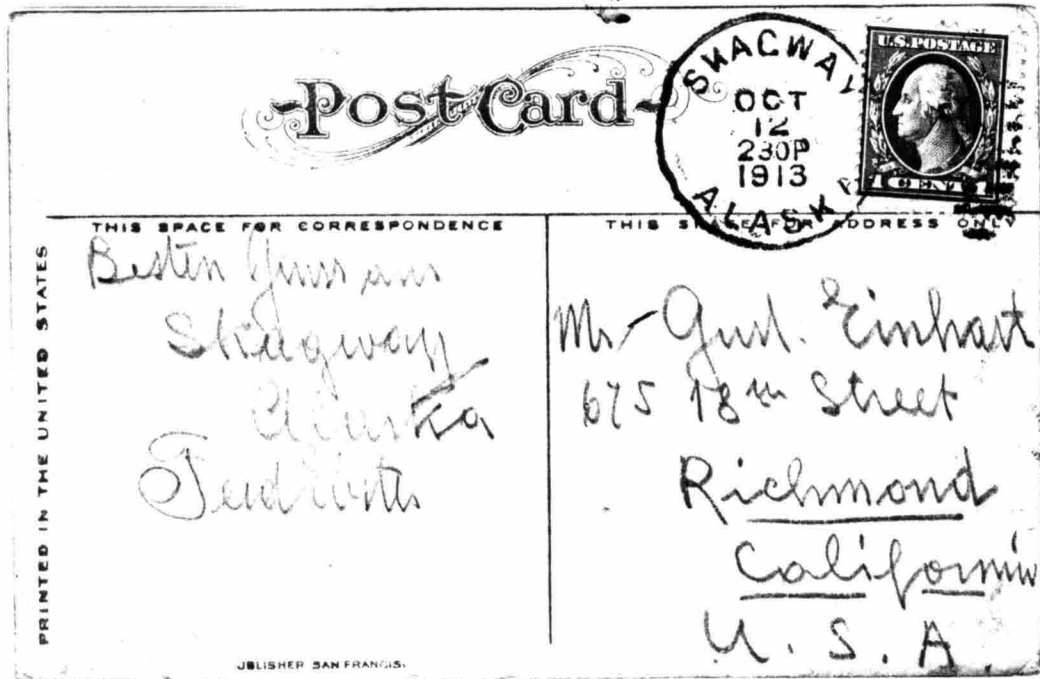 Post Card
SKAGWAY
OCT
12
230P
1913
ALASKA
U.S. POSTAGE
1 CENT 1
PRINTED IN THE UNITED STATES
THIS SPACE FOR CORRESPONDENCE
Besten Gruss aus
Skagway
Alaska
THIS SPACE FOR ADDRESS ONLY
Mr Gust. Einhart
675 18th Street
Richmond
California
U. S. A.